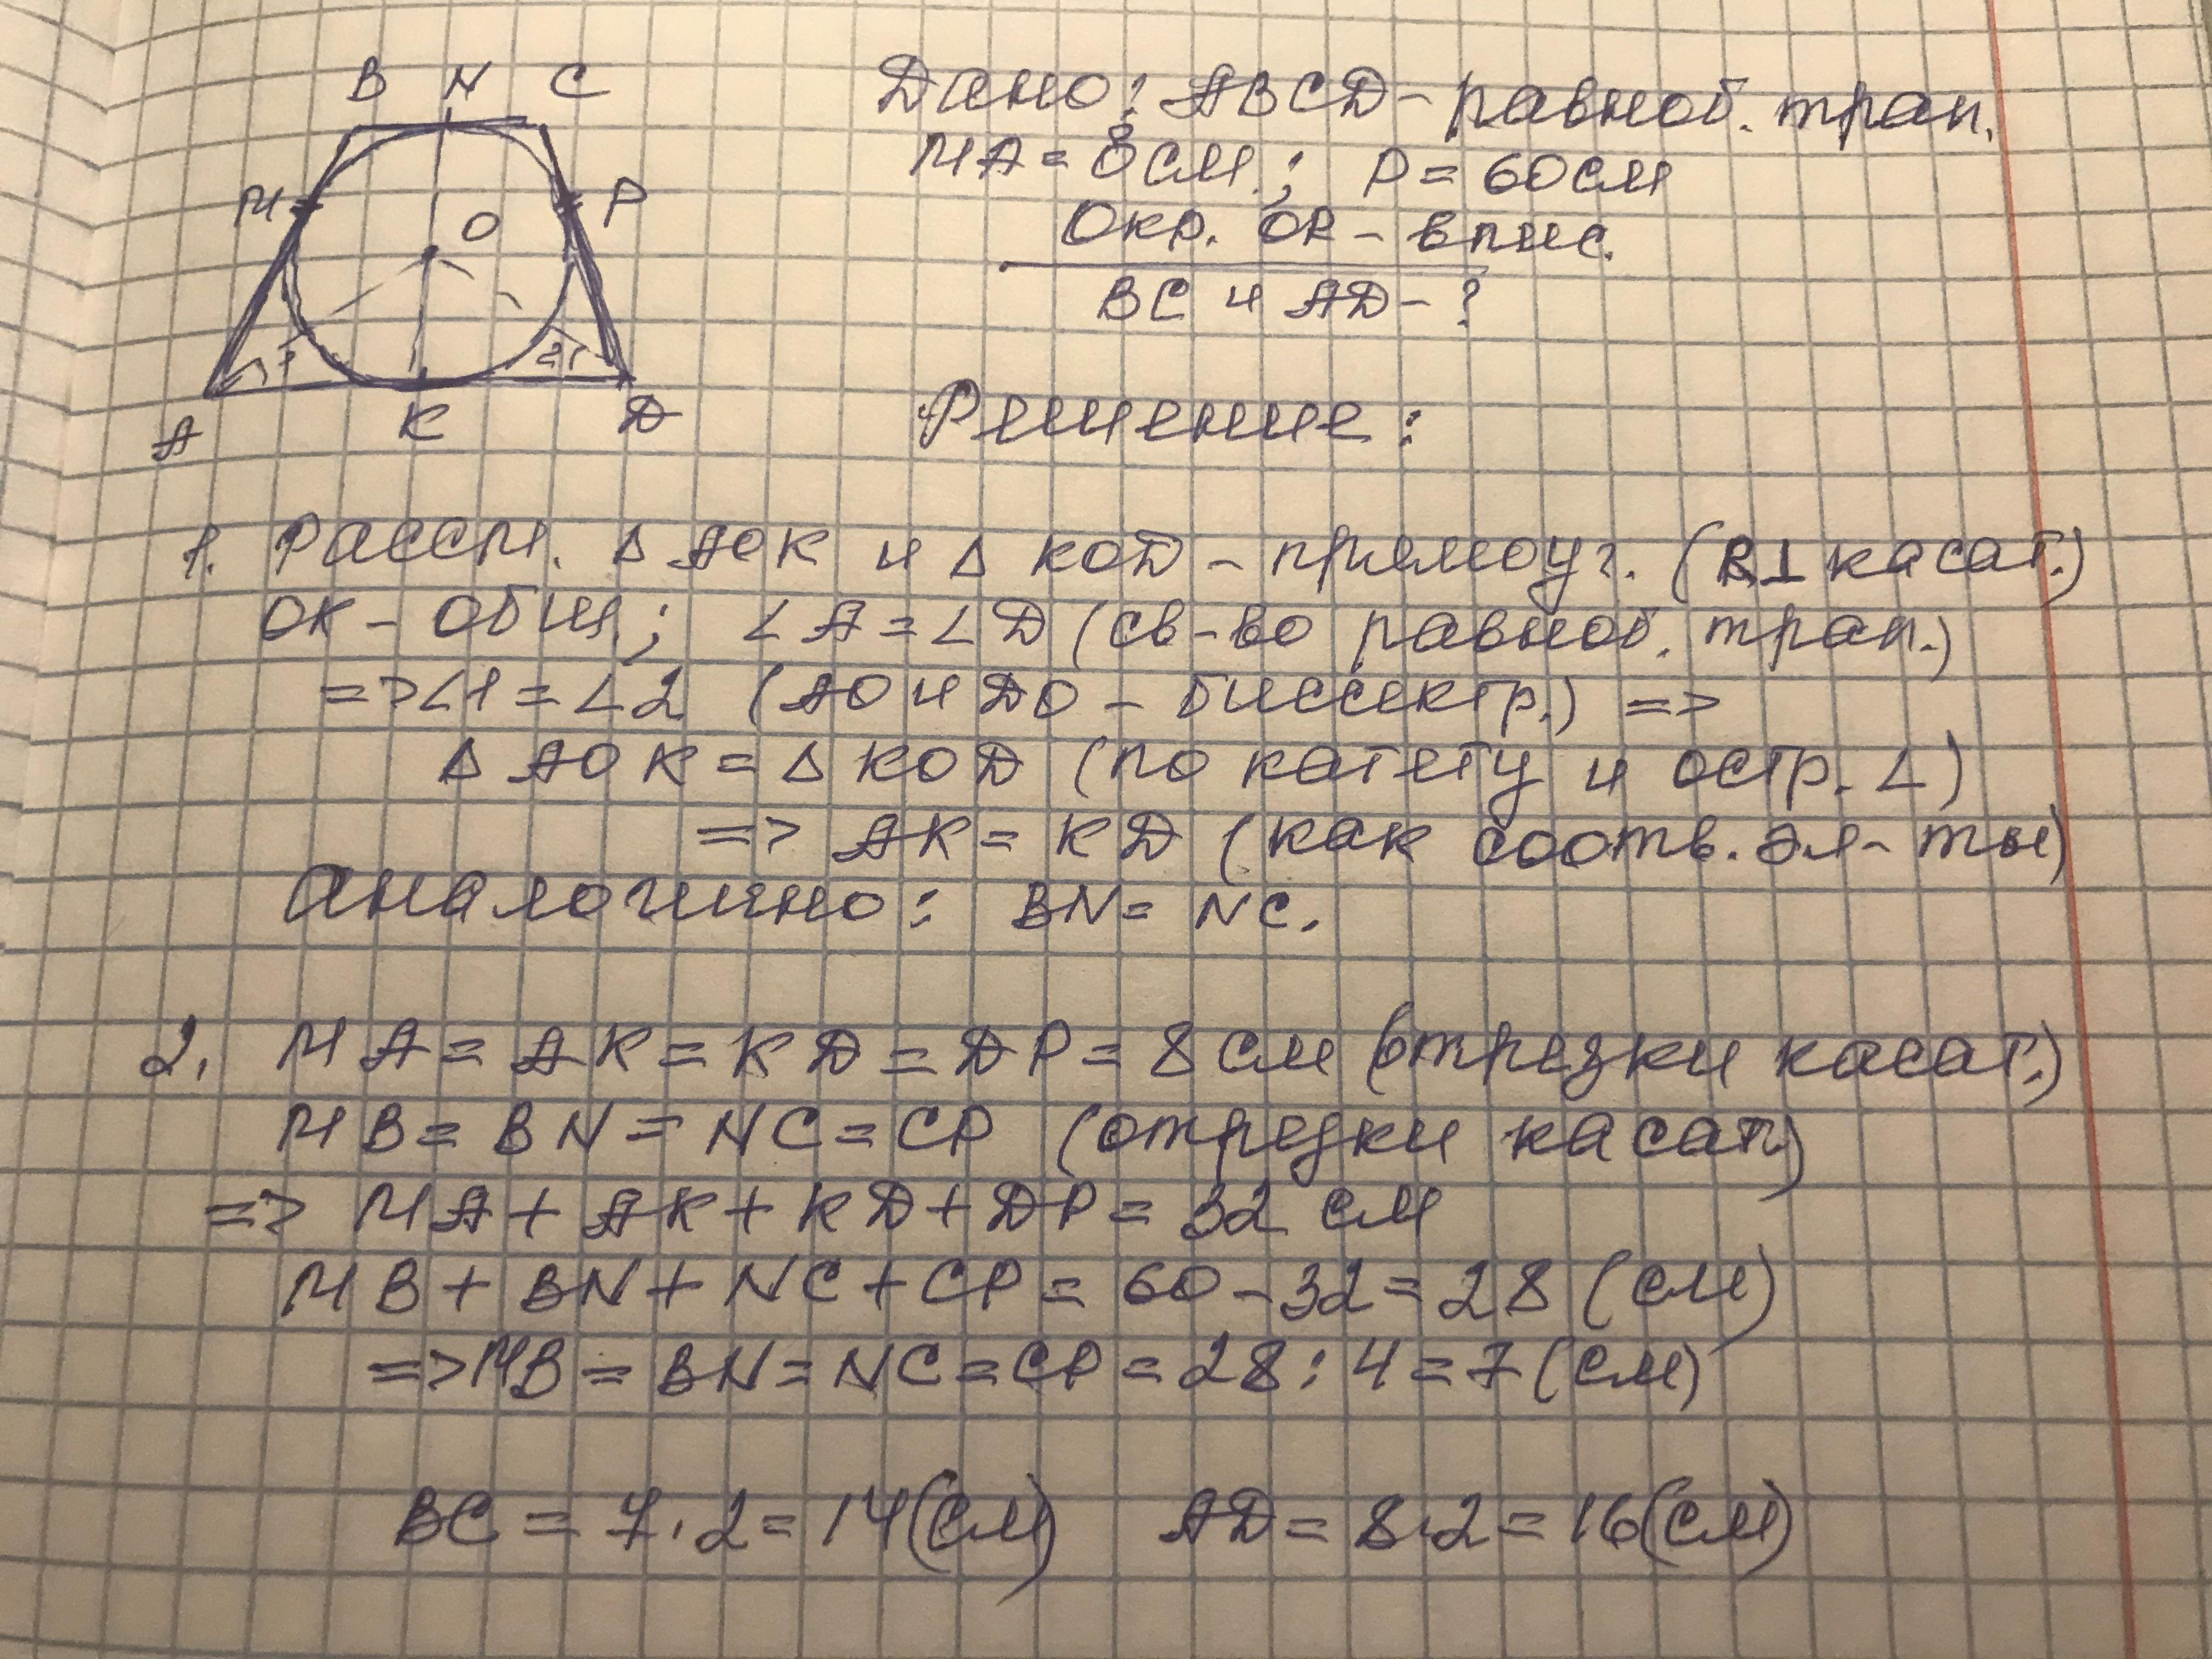 B N C
M P
O
1 2
A K D
Дано: ABCD - равноб. трап.
MA = 8 см.; P = 60 см
Окр. OR - впис.
BC и AD - ?
Решение:
1. Рассм. Δ AOK и Δ KOD - прямоуг. (R⊥касат.)
OK - общ.; ∠A = ∠D (св-во равноб. трап.)
=> ∠1 = ∠2 (AO и DO - биссектр.) =>
Δ AOK = Δ KOD (по катету и остр. ∠)
=> AK = KD (как соотв. эл-ты)
Аналогично: BN = NC.
2. MA = AK = KD = DP = 8 см (отрезки касат.)
MB = BN = NC = CP (отрезки касат)
=> MA + AK + KD + DP = 32 см
MB + BN + NC + CP = 60 - 32 = 28 (см)
=> MB = BN = NC = CP = 28 : 4 = 7 (см)
BC = 7 · 2 = 14 (см) AD = 8 · 2 = 16 (см)